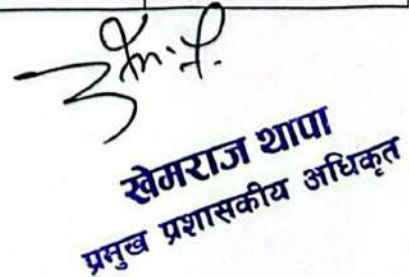 खेमराज थापा
प्रमुख प्रशासकीय अधिकृत